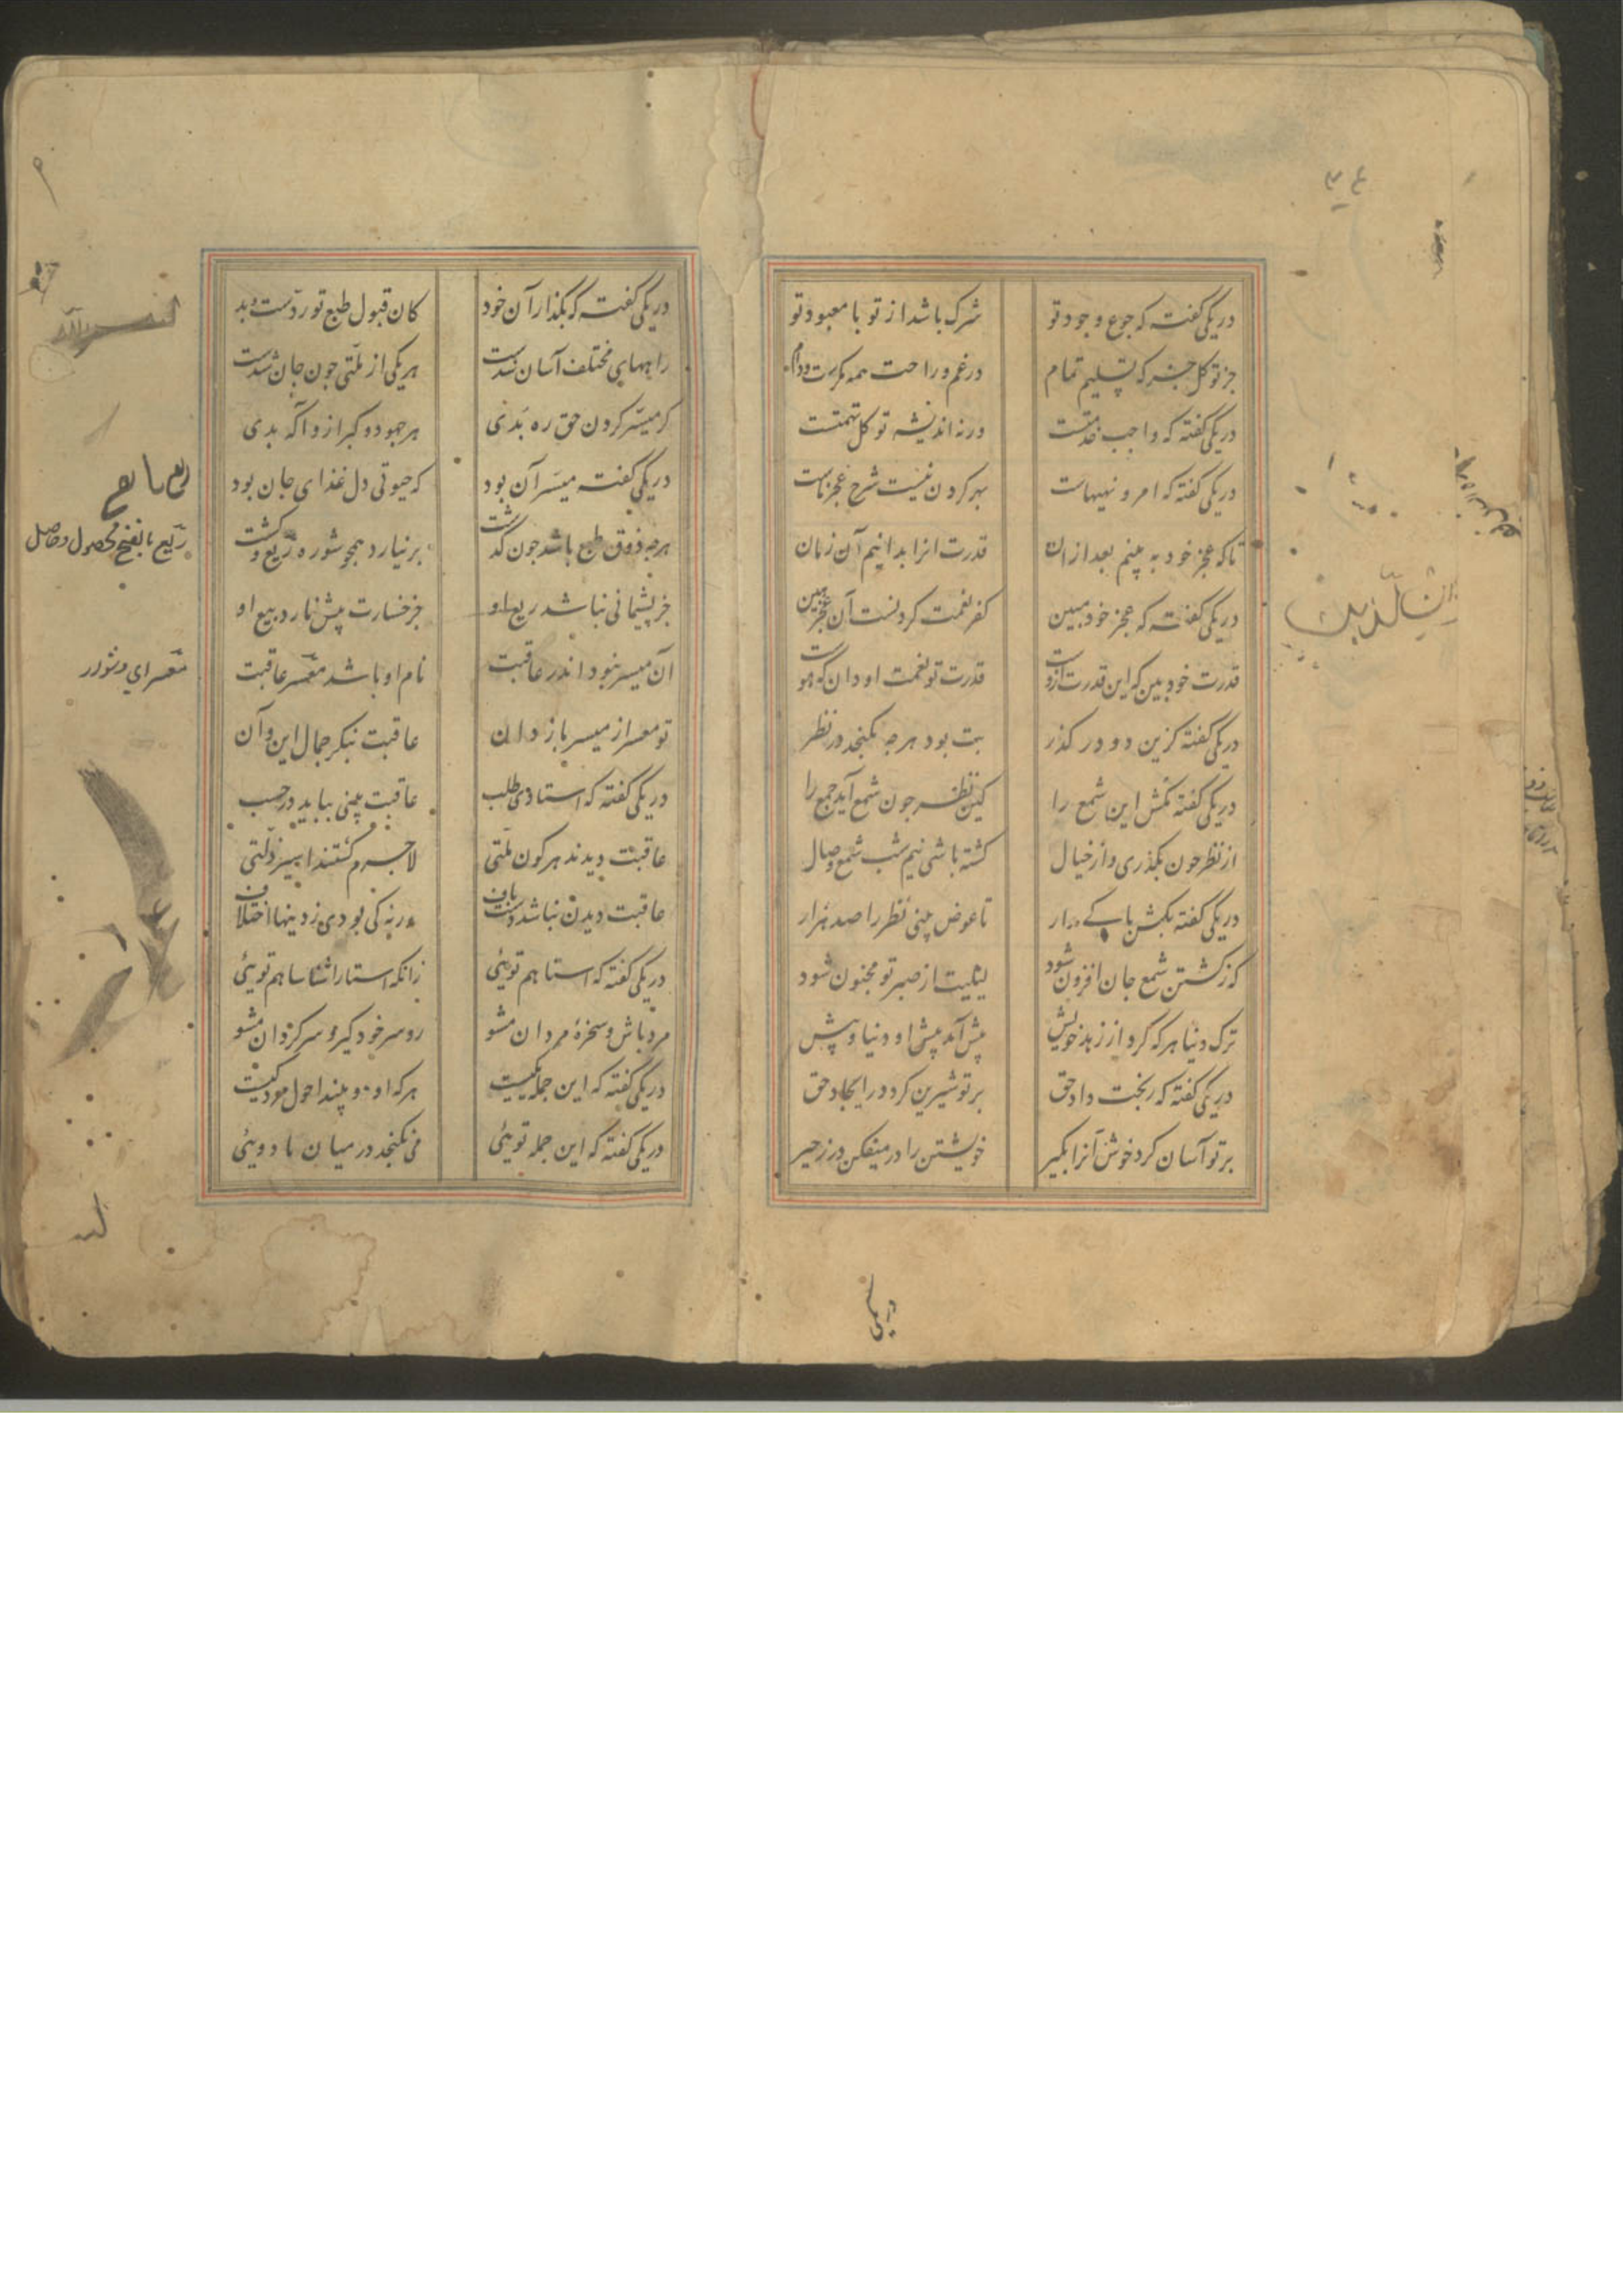 در یکی گفته که جوع وجود تو
شرک باشد از تو با معبود تو
جز توکل جز که تسلیم تمام
در غم و راحت همه مکرست ودام
در یکی گفته که واجب خدمتست
ورنه اندیشه توکل تهمتست
در یکی گفته که امر و نهیهاست
بهر کردن نیست شرح عجز ماست
تا که عجز خود به بینیم بعد ازان
قدرت انرا بدانیم آن زمان
در یکی گفته که عجز خود مبین
کفر نعمت کردنست آن عجز مبین
قدرت خود بین که این قدرت ازوست
قدرت تو نعمت او دان که هوست
در یکی گفته کزین دو در کذر
بت بود هرچه بکنجد در نظر
در یکی گفته مکش این شمع را
کین نظر جون شمع آید جمع را
از نظر جون بکذری واز خیال
کشته باشی نیم شب شمع وصال
در یکی گفته بکش باکی مدار
تا عوض بینی نظر را صد هزار
که ز کشتن شمع جان افزون شود
لیلیت از صبر تو مجنون شود
ترک دنیا هر که کرد از زهد خویش
پیش آمد پیش او دنیا و پیش
در یکی گفته که ربخت داد حق
بر تو شیرین کرد در ایجاد حق
بر تو آسان کرد خوش آنرا بکیر
خویشتن را در میفکن در زحیر
در یکی گفته که بکذار آن خود
کان قبول طبع تو ردّست وبد
راههای مختلف آسان شدست
هر یکی از ملّتی جون جان شدست
کر میسّر کردن حق ره بدی
هر جهود و کبر ازو آکه بدی
در یکی گفته میسّر آن بود
که حیوتی دل غذای جان بود
هرجه ذوق طبع باشد جون گذشت
بر نیارد همچو شوره ریع وکشت
جز پشیمانی نباشد ریع او
جز خسارت پیش نارد بیع او
آن میسر نبود اندر عاقبت
نام او باشد معسّر عاقبت
تو معسر از میسر باز دان
عاقبت بنکر جمال این وآن
در یکی گفته که استادی طلب
عاقبت بینی بیابد در حسب
عاقبت دیدند هر کون ملّتی
لاجرم کشتند اسیر زلّتی
عاقبت دیدن نباشد دست باف
ورنه کی بودی ز دینها اختلاف
در یکی گفته که استا هم توئی
زانکه استا را شناسا هم توئی
مرد باش وسخرهٔ مردان مشو
رو سر خود کیر و سرکردان مشو
در یکی گفته که این جمله یکیست
هر که او دو بیند احول مردکیست
در یکی گفته که این جمله توئی
می نکنجد در میان ما دوئی
ریع بالفتح محصول وحاصل
معسر ای دشوار
در یکی